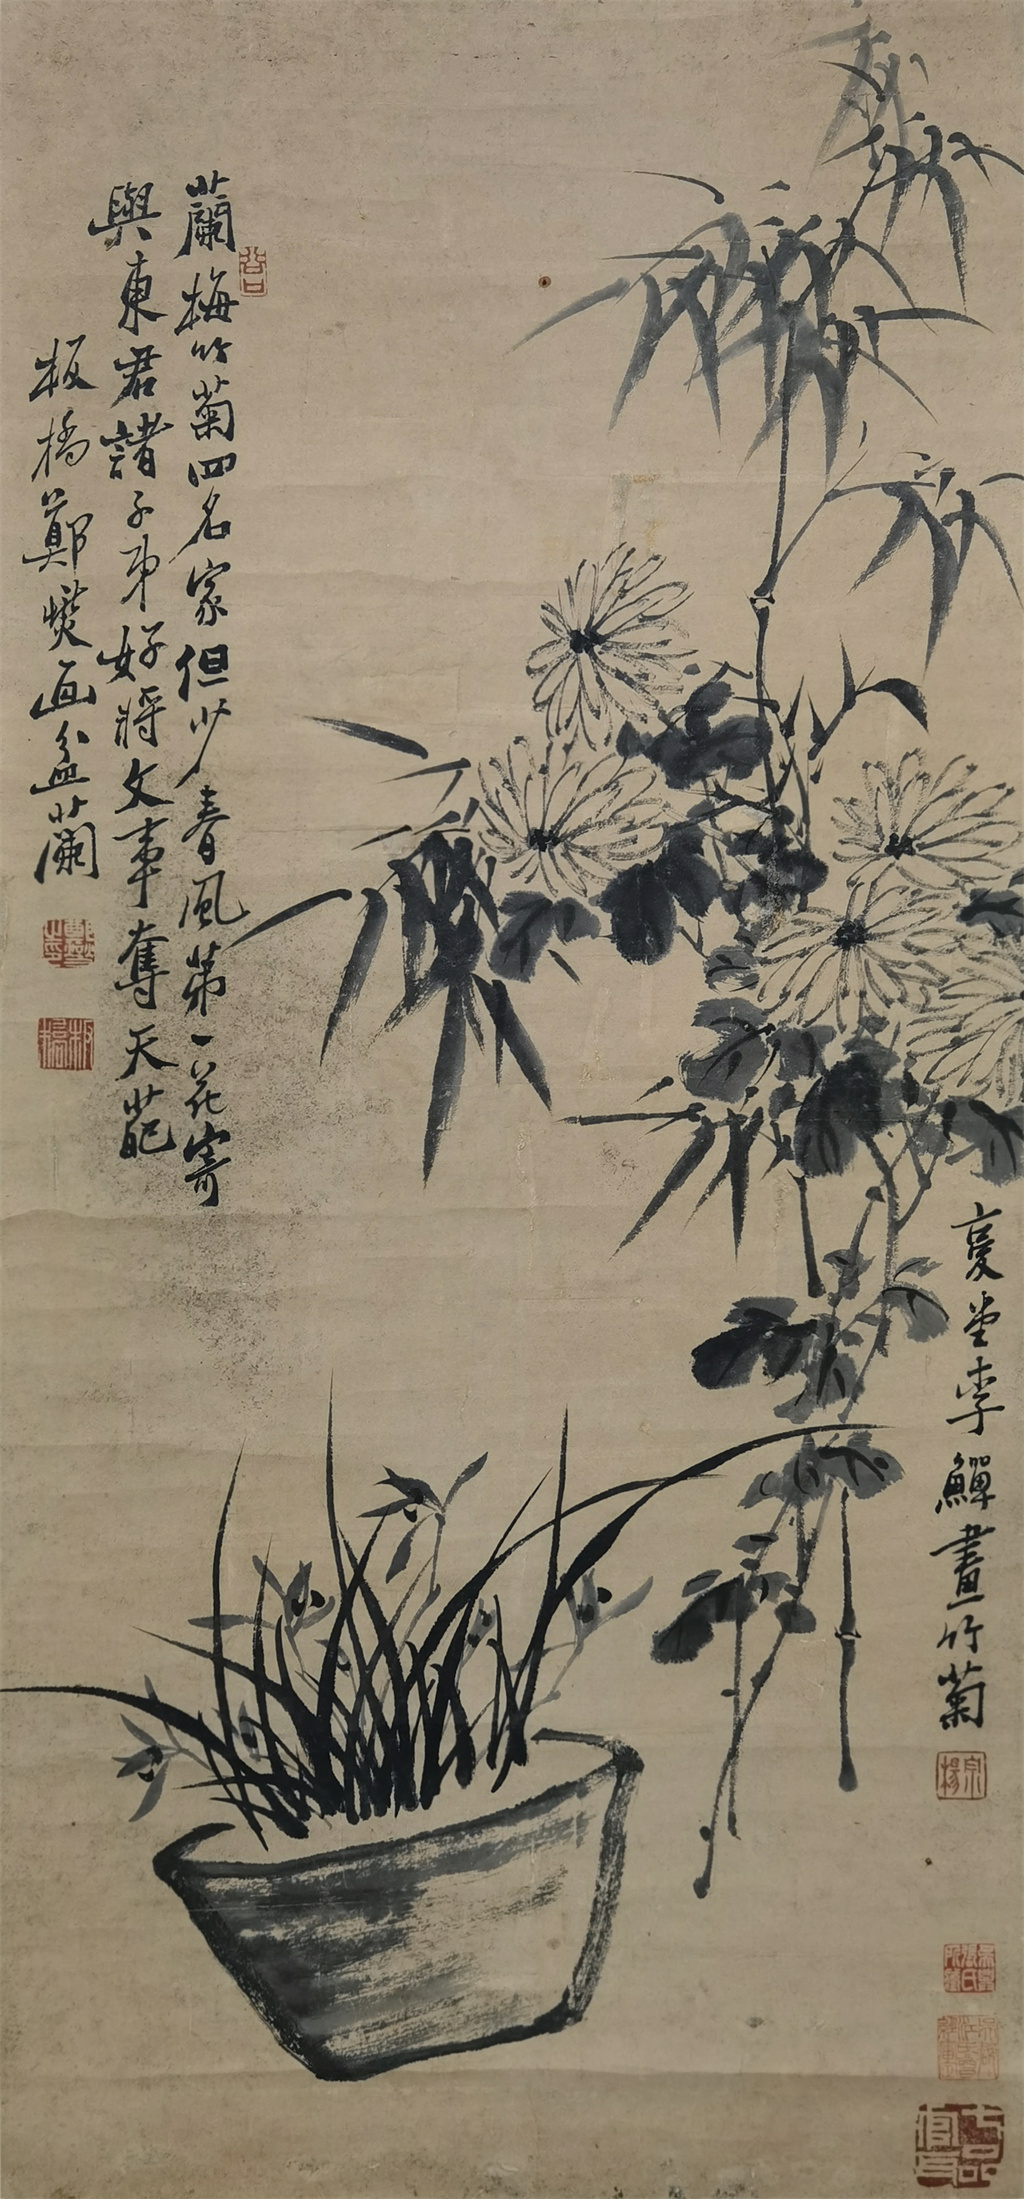 蘭梅竹菊四名家但少春風第一花寄
與東君諸子弟好將文事奪天葩
板橋鄭燮画盆蘭
復堂李鱓畫竹菊